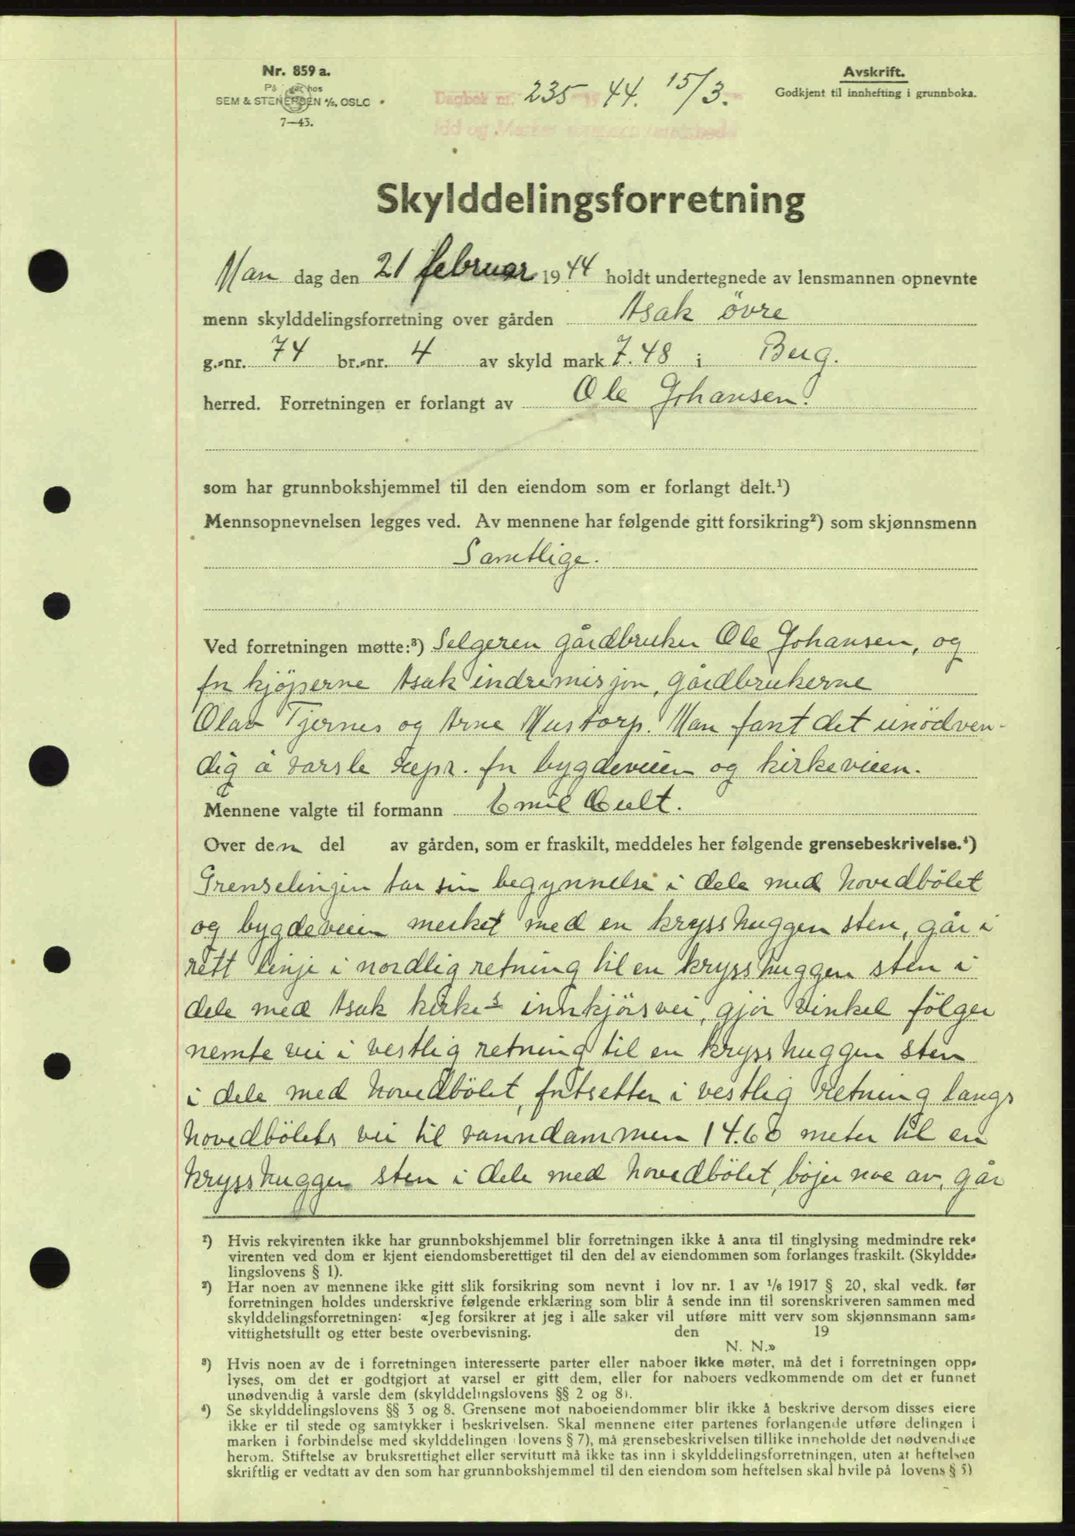 Nr. 859 a.
På lager hos
SEM & STENERSEN A/S, OSLO
7—43.
Dagbok nr. 235 19 44. 15/3.
Idd og Marker
Avskrift.
Godkjent til innhefting i grunnboka.
Skylddelingsforretning
Man dag den 21 februar 1944 holdt undertegnede av lensmannen opnevnte
menn skylddelingsforretning over gården Asak övre
g.-nr. 74 br.-nr. 4 av skyld mark 7.48 i Berg.
herred. Forretningen er forlangt av Ole Johansen.
som har grunnbokshjemmel til den eiendom som er forlangt delt.¹)
Mennsopnevnelsen legges ved. Av mennene har følgende gitt forsikring²) som skjønnsmenn
Samtlige.
Ved forretningen møtte:³) Selgeren gårdbruker Ole Johansen, og
for kjöperne Asak indremisjon, gårdbrukerne
Olav Tjernes og Arne Mustorp. Man fant det unödven-
dig å varsle repr. for bygdeveien og kirkeveien.
Mennene valgte til formann Emil Cult.
Over den del av gården, som er fraskilt, meddeles her følgende grensebeskrivelse.⁴)
Grenselinjen tar sin begynnelse i dele med hovedbölet
og bygdeveien merket med en krysshuggen sten, går i
rett linje i nordlig retning til en krysshuggen sten i
dele med Asak kirkes innkjörsvei, gjör vinkel fölger
nemte vei i vestlig retning til en krysshuggen sten
i dele med hovedbölet, fortsetter i vestlig retning langs
hovedbölets vei til vanndammen 14.60 meter til en
krysshuggen sten i dele med hovedbölet, böjer noe av, går
¹) Hvis rekvirenten ikke har grunnbokshjemmel blir forretningen ikke å anta til tinglysing medmindre rek-
virenten ved dom er kjent eiendomsberettiget til den del av eiendommen som forlanges fraskilt. (Skyldde-
lingslovens § 1).
²) Har noen av mennene ikke gitt slik forsikring som nevnt i lov nr. 1 av 1/6 1917 § 20, skal vedk. før
forretningen holdes underskrive følgende erklæring som blir å sende inn til sorenskriveren sammen med
skylddelingsforretningen: «Jeg forsikrer at jeg i alle saker vil utføre mitt verv som skjønnsmann sam-
vittighetsfullt og etter beste overbevisning. den 19
N. N.»
³) Hvis noen av de i forretningen interesserte parter eller naboer ikke møter, må det i forretningen opp-
lyses, om det er godtgjort at varsel er gitt dem, eller for naboers vedkommende om det er funnet
unødvendig å varsle dem (skylddelingslovens §§ 2 og 8).
⁴) Se skylddelingslovens §§ 3 og 8. Grensene mot naboeiendommer blir ikke å beskrive dersom disses eiere
ikke er til stede og samtykker i beskrivelsen. Skal mennene etter partenes forlangende utføre delingen i
marken i forbindelse med skylddelingen lovens § 7), må grensebeskrivelsen tillike inneholde det nødvendige
herom. Stiftelse av bruksrettighet eller servitutt må ikke tas inn i skylddelingsforretningen, uten at heftelsen
skriftlig er vedtatt av den som har grunnbokshjemmel til den eiendom som heftelsen skal hvile på lovens § 5)